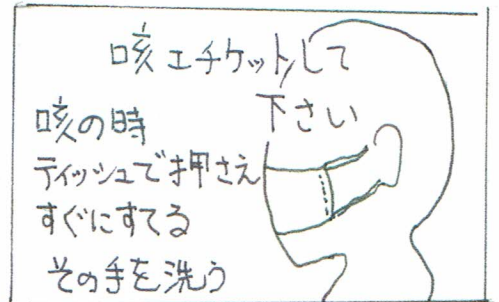 咳エチケットして
下さい
咳の時
ティッシュで押さえ
すぐにすてる
その手を洗う